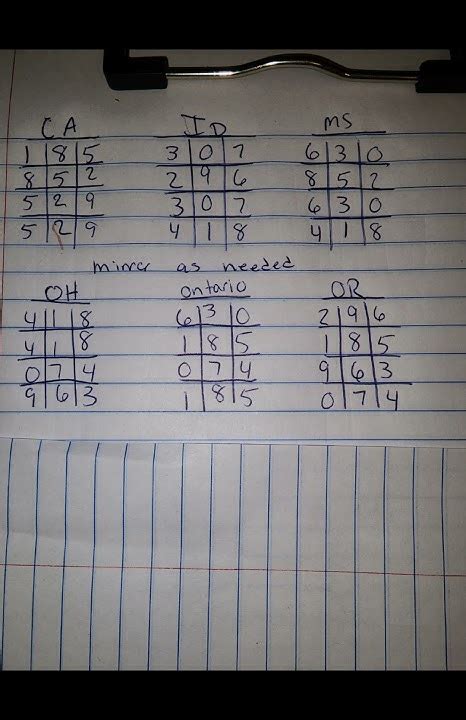 CA ID MS
1 8 5 3 0 7 6 3 0
8 5 2 2 9 6 8 5 2
5 2 9 3 0 7 6 3 0
5 2 9 4 1 8 4 1 8
mirror as needed
OH ontario OR
4 1 8 6 3 0 2 9 6
4 1 8 1 8 5 1 8 5
0 7 4 0 7 4 9 6 3
9 6 3 1 8 5 0 7 4